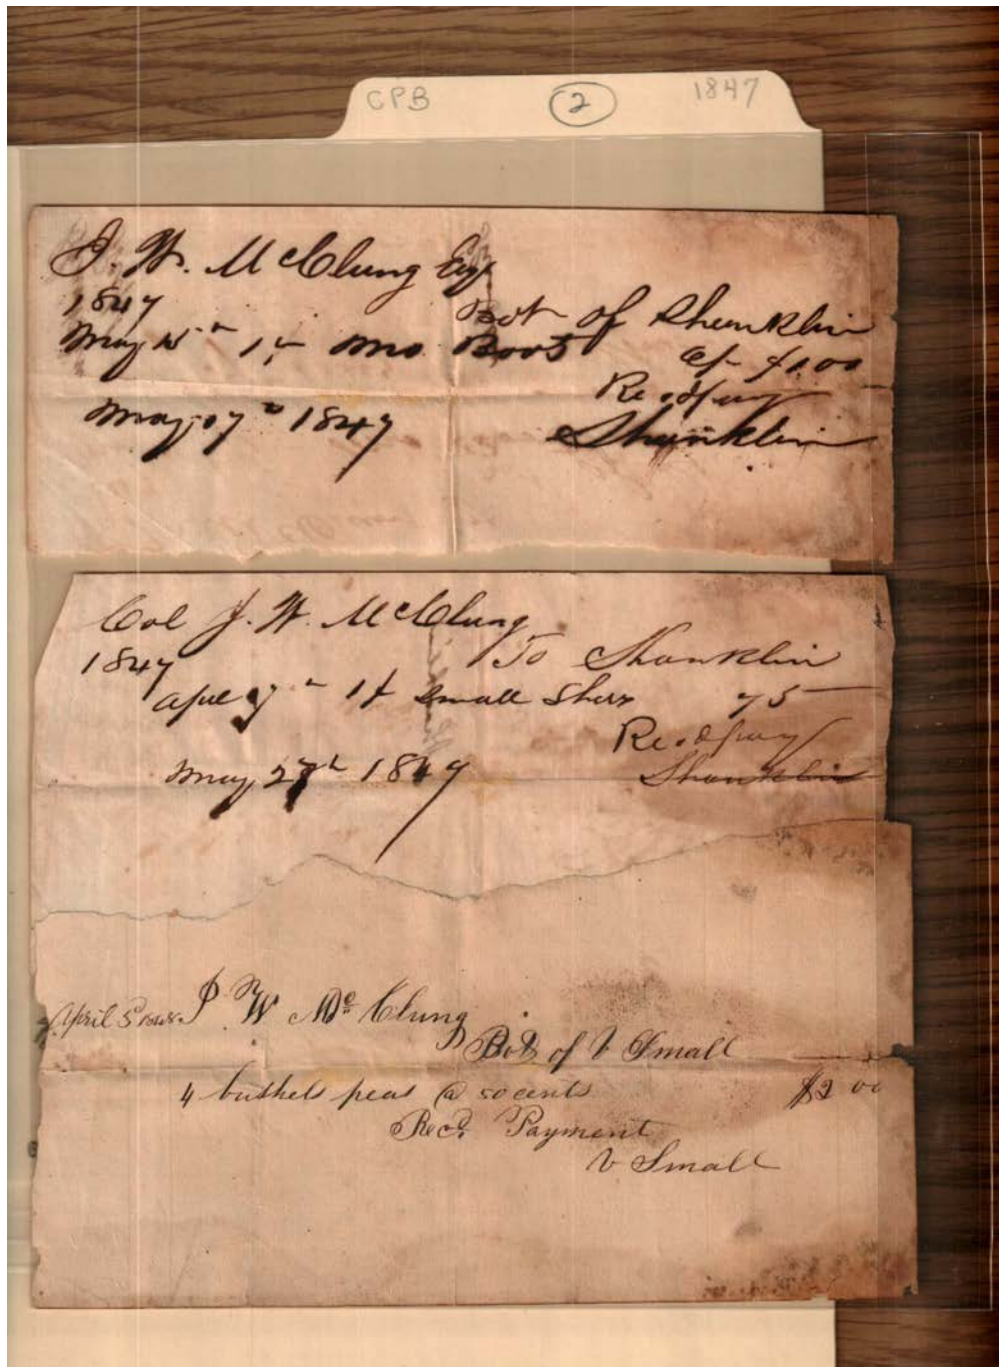 CPB 2 1847
J. W. McClung Esq
1847
Bot of Shanklin
May 15th 1 pr Boots $1.00
Recd pay
May 17th 1847 Shanklin
Col J. W. McClung
1847 To Shanklin
Apl 1 small 75
Recd pay
May 27th 1847 Shanklin
April 5 J W Mc Clung
Bot of V Small
4 bushels peas @ 50 cents $2 00
Recd. Payment
V Small